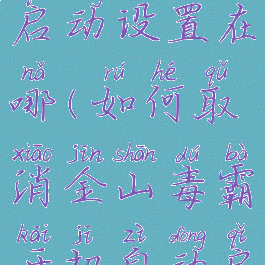 启动设置在
nǎ rú hé qǔ
哪(如何取
xiāo jīn shān dú bà
消金山毒霸
kāi jī zì dòng qǐ
开机自动启